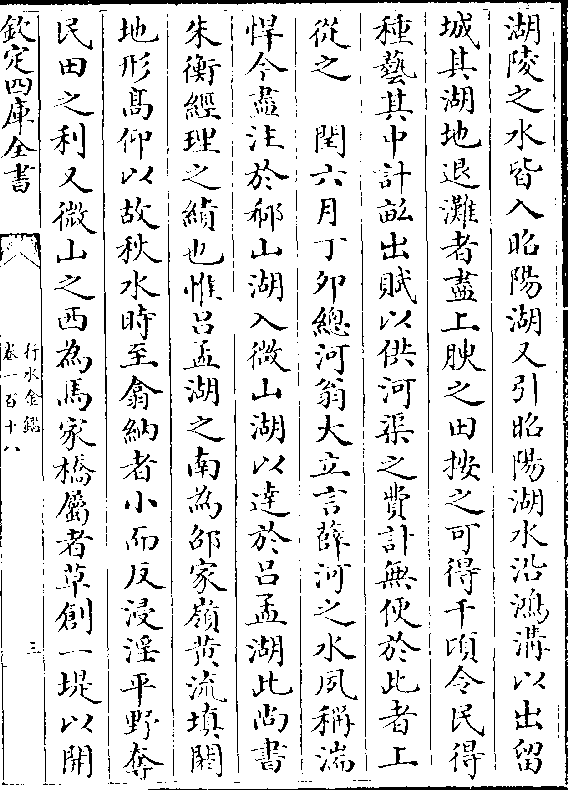 湖陵之水皆入昭陽湖又引昭陽湖水沿鴻溝以出留
城其湖地退灘者盡上腴之田按之可得千頃令民得
種藝其中計畝出賦以供河渠之費計無便於此者上
從之　閏六月丁夘總河翁大立言薛河之水夙稱湍
悍今盡注於郗山湖入微山湖以達於吕孟湖此尚書
朱衡經理之績也惟吕孟湖之南為邵家嶺黄流填閼
地形髙仰以故秋水時至翕納者小而反浸淫平野奪
民田之利又微山之西為馬家橋屬者草創一堤以開
欽定四庫全書
行水金鑑
卷一百十八
三